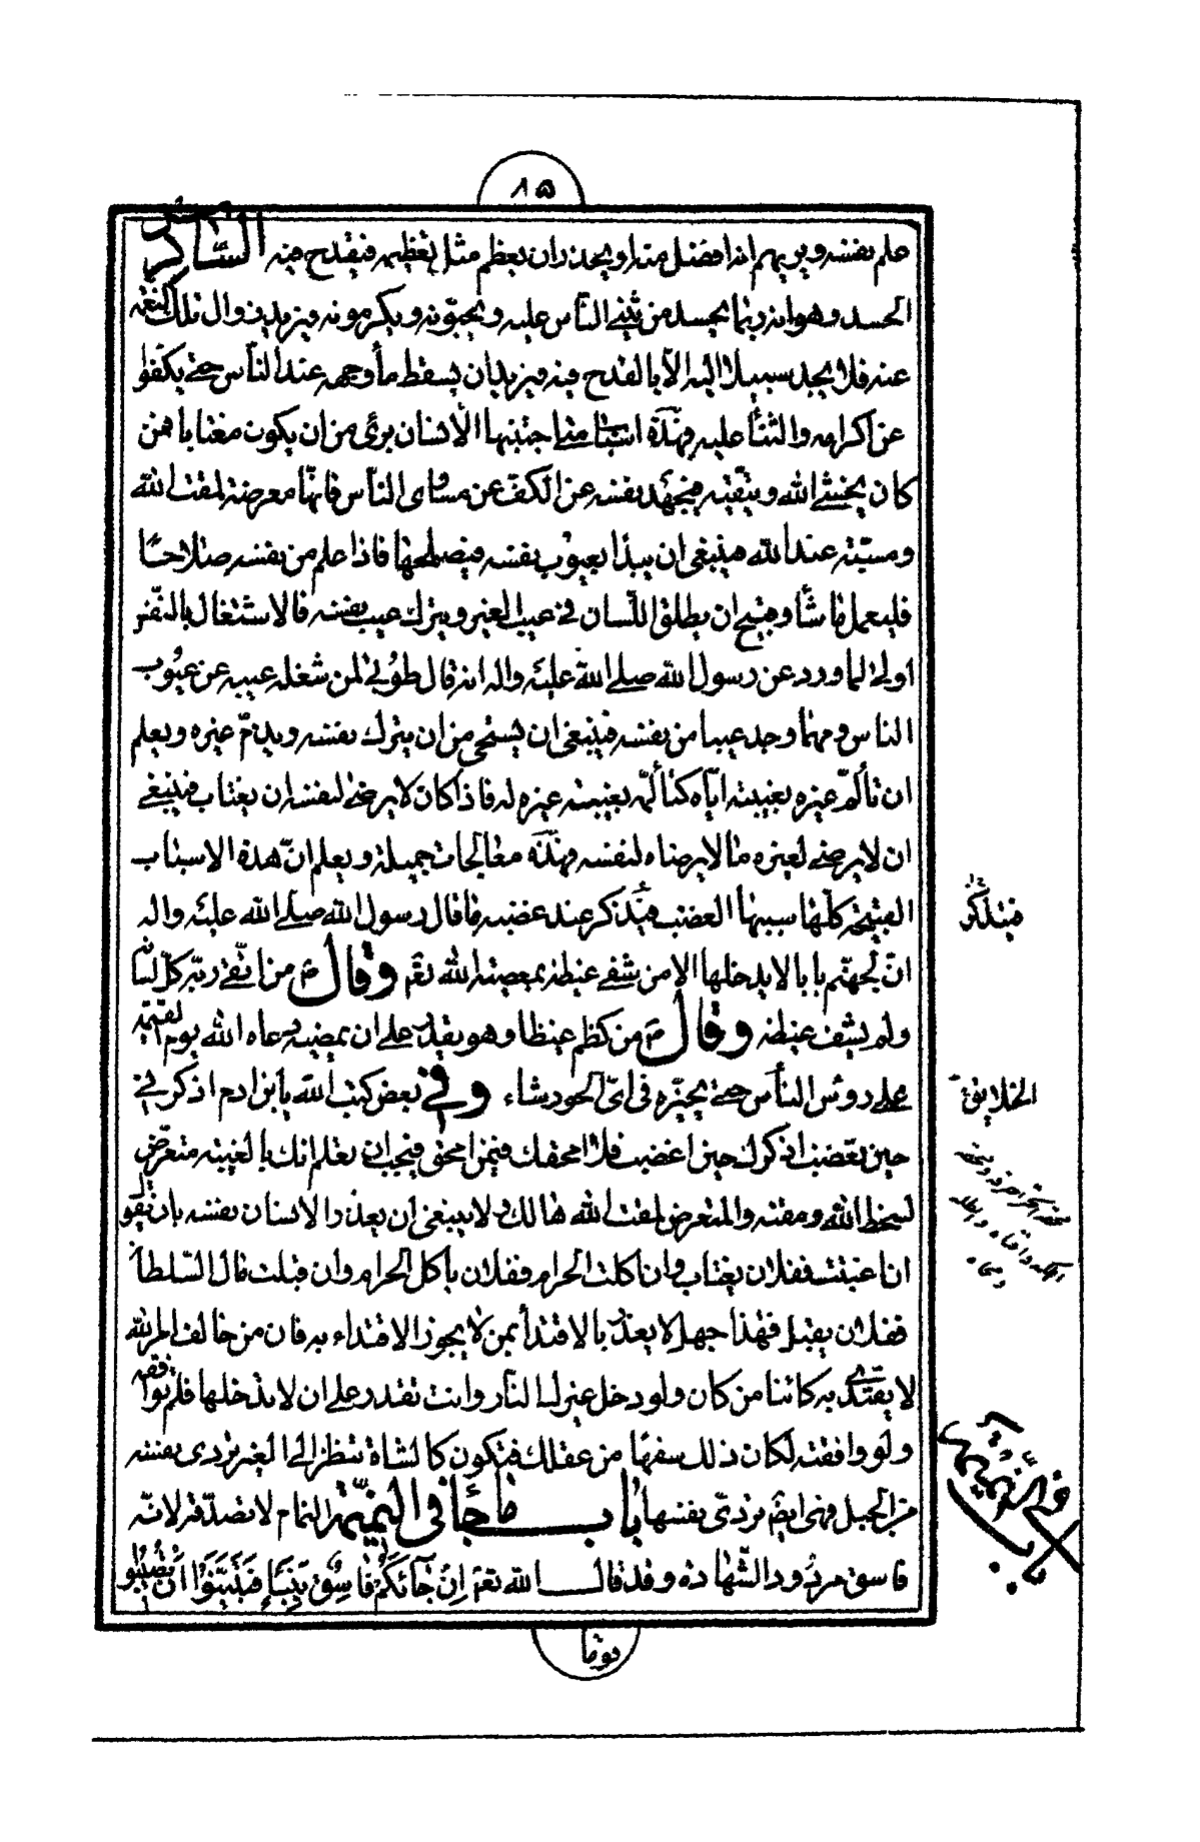 ٨٥
علم نفسه ويريهم انه افضل منه او يحذر ان يعظم مثل تعظيمه فيقدح فيه السادس
الحسد وهو انه ربما يحسد من يثنى الناس عليه ويحبونه ويكرمونه فيريد زوال تلك النعمة
عنه فلا يجد سبيلا اليه الا بالقدح فيه فيريد ان يسقط ماء وجهه عند الناس حتى يكفوا
عن اكرامه والثناء عليه فهذه اسباب متى اجتنبها الانسان برئ من ان يكون مغتابا فمن
كان يخشى الله ويتقيه فيجهد نفسه عن الكف عن مساوى الناس فانها معرضة لمقت الله
ومسبّة عند الله فينبغى ان يبدأ بعيوب نفسه فيصلحها فاذا علم من نفسه صلاحا
فليعمل ما شاء وقبيح ان يطلق اللسان فى عيب الغير ويترك عيب نفسه فالاشتغال بالنفس
اولى لما ورد عن رسول الله صلى الله عليه واله انه قال طوبى لمن شغله عيبه عن عيوب
الناس ومهما وجد عيبا من نفسه فينبغى ان يستحى من ان يترك نفسه ويذمّ غيره ويعلم
ان تألّم غيره بغيبته ايّاه كتألّمه بغيبته غيره له فاذا كان لا يرضى لنفسه ان يغتاب فينبغى
ان لا يرضى لغيره ما لا يرضاه لنفسه فهذه معالجات جميلة ويعلم انّ هذه الاسباب
القبيحة كلّها سببها الغضب فيتذكر عند غضبه ما قال رسول الله صلى الله عليه واله
انّ لجهنّم بابا لا يدخلها الا من شفى غيظه بمعصية الله تعم وقال ص من اتّقى ربّه كلّ لسانه
ولم يشف غيظه وقال ص من كظم غيظا وهو يقدر على ان يمضيه دعاه الله يوم القيمة
على رؤس الناس حتى يخيّره فى اىّ الحور شاء وفى بعض كتب الله يا بن ادم اذكرنى
حين تغضب اذكرك حين اغضب فلا امحقك فيمن امحق فيجب ان تعلم انك بالغيبة متعرض
لسخط الله ومقته والمتعرض لمقت الله هالك ولا ينبغى ان يعذر الانسان نفسه بان يقول
انا اغبتت ففلان يغتاب وان اكلت الحرام ففلان يأكل الحرام وان قبلت مال السلطان
ففلان يقبل فهذا جهل لا يعذر بالاقتداء بمن لا يجوز الاقتداء به فان من خالف امر الله
لا يقتدى به كائنا من كان ولو دخل غيرك النار وانت تقدر على ان لا تدخلها فلم توافقه
ولو وافقته لكان ذلك سفها من عقلك فتكون كالشاة تنظر الى العنز تردى نفسه
من الجبل فهى ايضا تردّى نفسها باب ما جاء فى النميمة النمام لا تصدّقه لانه
فاسق مردود الشهادة وقد قال الله تعم اِنْ جَآئَكُمْ فَاسِقٌ بِنَبَاٍ فَتَبَيَّنُوا اَنْ تُصيبُوا
قوما
فيتذكر
الخلايق
باب فى النميمة